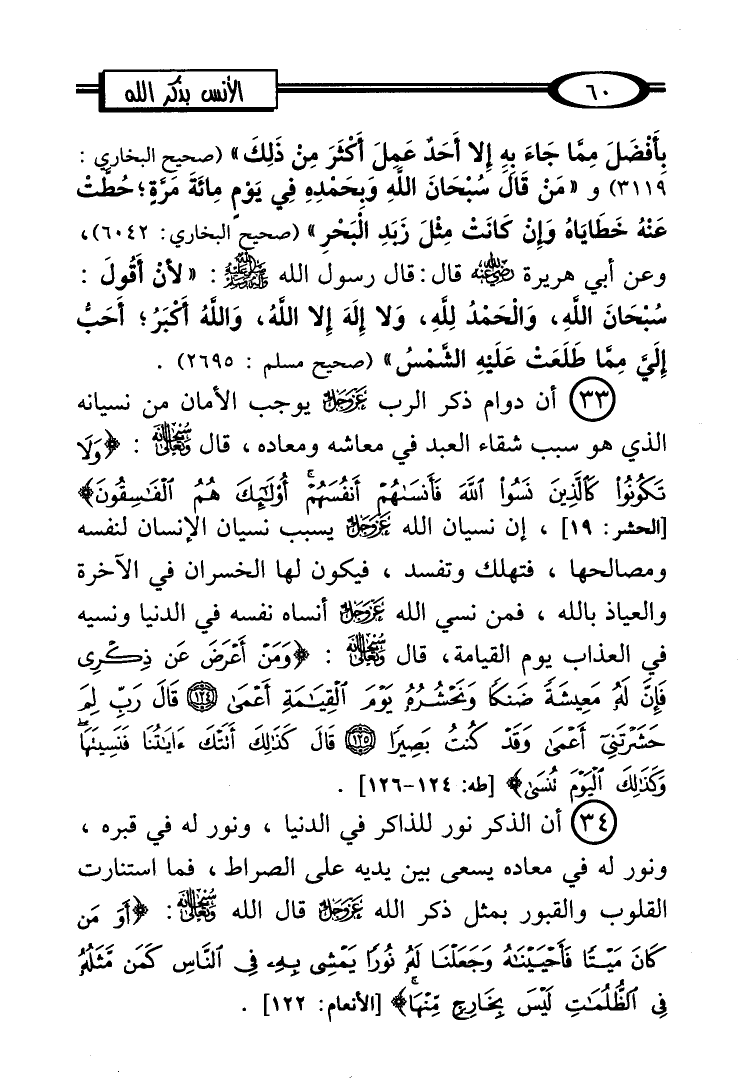 ٦٠
الأنس بذكر الله
بِأَفْضَلَ مِمَّا جَاءَ بِهِ إِلا أَحَدٌ عَمِلَ أَكْثَرَ مِنْ ذَلِكَ» (صحيح البخاري :
٣١١٩) و «مَنْ قَالَ سُبْحَانَ اللَّهِ وَبِحَمْدِهِ فِي يَوْمٍ مِائَةَ مَرَّةٍ؛ حُطَّتْ
عَنْهُ خَطَايَاهُ وَإِنْ كَانَتْ مِثْلَ زَبَدِ الْبَحْرِ» (صحيح البخاري: ٦٠٤٢)،
وعن أبي هريرة رضي الله عنه قال : قال رسول الله صلى الله عليه وآله وسلم : «لأنْ أَقُولَ :
سُبْحَانَ اللَّهِ، وَالْحَمْدُ لِلَّهِ، وَلا إِلَهَ إِلا اللَّهُ، وَاللَّهُ أَكْبَرُ؛ أَحَبُّ
إِلَيَّ مِمَّا طَلَعَتْ عَلَيْهِ الشَّمْسُ» (صحيح مسلم : ٢٦٩٥) .
٣٣ أن دوام ذكر الرب عز وجل يوجب الأمان من نسيانه
الذي هو سبب شقاء العبد في معاشه ومعاده ، قال سبحانه وتعالى : ﴿وَلَا
تَكُونُوا۟ كَٱلَّذِينَ نَسُوا۟ ٱللَّهَ فَأَنسَىٰهُمْ أَنفُسَهُمْ ۚ أُو۟لَـٰٓئِكَ هُمُ ٱلْفَـٰسِقُونَ﴾
[الحشر: ١٩] ، إن نسيان الله عز وجل يسبب نسيان الإنسان لنفسه
ومصالحها ، فتهلك وتفسد ، فيكون لها الخسران في الآخرة
والعياذ بالله ، فمن نسي الله عز وجل أنساه نفسه في الدنيا ونسيه
في العذاب يوم القيامة، قال سبحانه وتعالى : ﴿وَمَنْ أَعْرَضَ عَن ذِكْرِى
فَإِنَّ لَهُۥ مَعِيشَةً ضَنكًا وَنَحْشُرُهُۥ يَوْمَ ٱلْقِيَـٰمَةِ أَعْمَىٰ ١٢٤ قَالَ رَبِّ لِمَ
حَشَرْتَنِىٓ أَعْمَىٰ وَقَدْ كُنتُ بَصِيرًا ١٢٥ قَالَ كَذَٰلِكَ أَتَتْكَ ءَايَـٰتُنَا فَنَسِيتَهَا ۖ
وَكَذَٰلِكَ ٱلْيَوْمَ تُنسَىٰ﴾ [طه: ١٢٤-١٢٦] .
٣٤ أن الذكر نور للذاكر في الدنيا ، ونور له في قبره ،
ونور له في معاده يسعى بين يديه على الصراط ، فما استنارت
القلوب والقبور بمثل ذكر الله عز وجل قال الله سبحانه وتعالى : ﴿أَوَ مَن
كَانَ مَيْتًا فَأَحْيَيْنَـٰهُ وَجَعَلْنَا لَهُۥ نُورًا يَمْشِى بِهِۦ فِى ٱلنَّاسِ كَمَن مَّثَلُهُۥ
فِى ٱلظُّلُمَـٰتِ لَيْسَ بِخَارِجٍ مِّنْهَا ۚ﴾ [الأنعام: ١٢٢] .